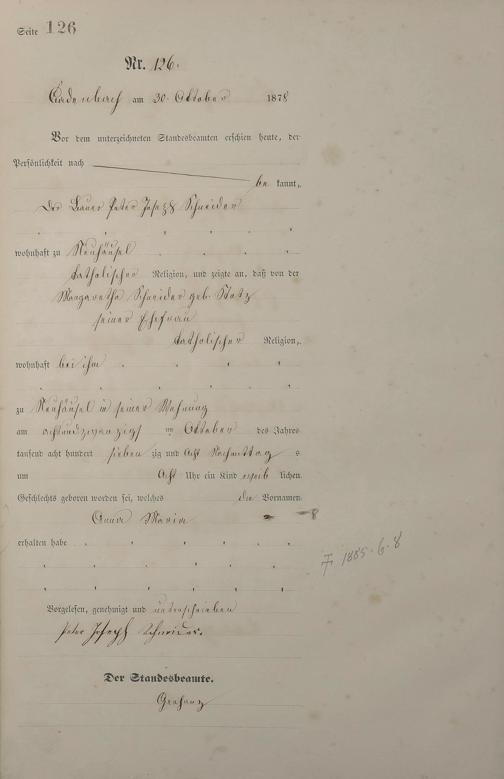 Seite 126
Nr. 126.
Cadenbach am 30. Oktober 1878
Vor dem unterzeichneten Standesbeamten erschien heute, der
Persönlichkeit nach
be kannt,
Der Bauer Peter Joseph Schneider
wohnhaft zu Neuhäusel
katholischer Religion, und zeigte an, daß von der
Margaretha Schneider geb. Statz
seiner Ehefrau
katholischer Religion,
wohnhaft bei ihm
zu Neuhäusel in seiner Wohnung
am achtundzwanzigst en Oktober des Jahres
tausend acht hundert sieben zig und acht Nachmittag s
um Acht Uhr ein Kind weib lichen
Geschlechts geboren worden sei, welches die Vornamen
Anna Maria
erhalten habe
Vorgelesen, genehmigt und unterschrieben
Peter Joseph Schneider.
Der Standesbeamte.
1885. 6. 8